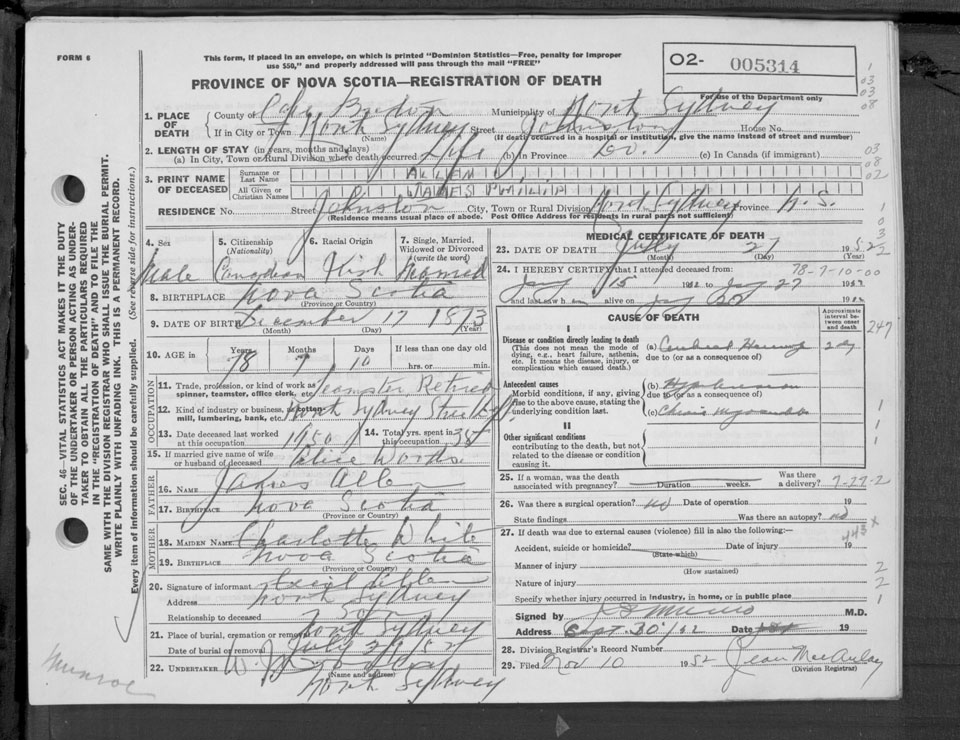 FORM 6
This form, if placed in an envelope, on which is printed "Dominion Statistics—Free, penalty for improper
use $50," and properly addressed will pass through the mail "FREE"
PROVINCE OF NOVA SCOTIA—REGISTRATION OF DEATH
O2- 005314
For use of the Department only
1. PLACE OF DEATH
County of Cape Breton Municipality of North Sydney
If in City or Town North Sydney Street Johnston House No.
(Name) (If death occurred in a hospital or institution, give the name instead of street and number)
2. LENGTH OF STAY (in years, months and days)
(a) In City, Town or Rural Division where death occurred Life (b) In Province Do. (c) In Canada (if immigrant)
3. PRINT NAME OF DECEASED
Surname or Last Name ALLEN
All Given or Christian Names JAMES PHILLIP
RESIDENCE No. Street Johnston City, Town or Rural Division North Sydney Province N.S.
(Residence means usual place of abode. Post Office Address for residents in rural parts not sufficient)
4. Sex Male
5. Citizenship (Nationality) Canadian
6. Racial Origin Irish
7. Single, Married, Widowed or Divorced (write the word) Married
8. BIRTHPLACE Nova Scotia
(Province or Country)
9. DATE OF BIRTH December 17 1873
(Month) (Day) (Year)
10. AGE in Years Months Days If less than one day old
78 7 10 hrs. or min.
OCCUPATION
11. Trade, profession, or kind of work as spinner, teamster, office clerk, etc. Teamster Retired
12. Kind of industry or business, as cotton mill, lumbering, bank, etc. North Sydney
13. Date deceased last worked at this occupation 1950
14. Total yrs. spent in this occupation 35
15. If married give name of wife or husband of deceased Alice Woods
FATHER
16. NAME James Allen
17. BIRTHPLACE Nova Scotia
(Province or Country)
MOTHER
18. MAIDEN NAME Charlotte White
19. BIRTHPLACE Nova Scotia
(Province or Country)
20. Signature of informant Allen
Address North Sydney
Relationship to deceased Son
21. Place of burial, cremation or removal North Sydney
Date of burial or removal July 52
22. UNDERTAKER W. J.
(Name and address)
North Sydney
MEDICAL CERTIFICATE OF DEATH
23. DATE OF DEATH July 27 1952
(Month) (Day) (Year)
24. I HEREBY CERTIFY that I attended deceased from: 78-7-10-00
15 1952 to 27 1952
and last saw h alive on 195
CAUSE OF DEATH
Approximate interval between onset and death
I
Disease or condition directly leading to death (a) Cerebral
(This does not mean the mode of dying, e.g., heart failure, asthenia, etc. It means the disease, injury, or complication which caused death.)
due to (or as a consequence of)
Antecedent causes (b)
Morbid conditions, if any, giving rise to the above cause, stating the underlying condition last.
due to (or as a consequence of)
(c)
II
Other significant conditions
contributing to the death, but not related to the disease or condition causing it.
247
25. If a woman, was the death associated with pregnancy? Duration weeks. Was there a delivery? 7-27-2
26. Was there a surgical operation? no Date of operation 19
State findings Was there an autopsy? no
27. If death was due to external causes (violence) fill in also the following:-
443 x
Accident, suicide or homicide? Date of injury 19
(State which)
Manner of injury
(How sustained)
Nature of injury
Specify whether injury occurred in industry, in home, or in public place
Signed by M.D.
Address Sept. 30/52 Date 19
28. Division Registrar's Record Number
29. Filed Nov 10 1952 Jean MacAulay
(Division Registrar)
SEC. 46—VITAL STATISTICS ACT MAKES IT THE DUTY
OF THE UNDERTAKER OR PERSON ACTING AS UNDER-
TAKER TO OBTAIN ALL THE PARTICULARS REQUIRED
IN THE "REGISTRATION OF DEATH" AND TO FILE THE
SAME WITH THE DIVISION REGISTRAR WHO SHALL ISSUE THE BURIAL PERMIT.
WRITE PLAINLY WITH UNFADING INK. THIS IS A PERMANENT RECORD.
Every item of information should be carefully supplied. (See reverse side for instructions.)
Munroe